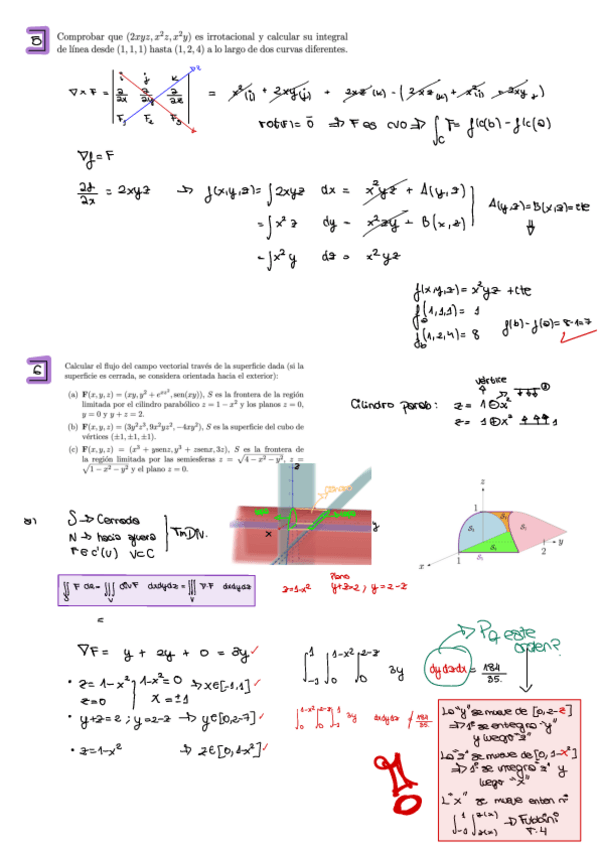 5
Comprobar que (2xyz, x²z, x²y) es irrotacional y calcular su integral
de línea desde (1, 1, 1) hasta (1, 2, 4) a lo largo de dos curvas diferentes.
i j k
∇×F = | ∂/∂x ∂/∂y ∂/∂z | =
F₁ F₂ F₃
rot(F) = 0̄ ⇒ F es cvo ⇒ ∫_C F = f(c(b)) - f(c(a))
∇f = F
∂f/∂x = 2xyz → f(x,y,z) = ∫2xyz dx = x²yz + A(y,z)
= ∫x²z dy = x²zy + B(x,z)
= ∫x²y dz = x²yz
A(y,z) = B(x,z) = cte
f(x,y,z) = x²yz + cte
f(1,1,1) = 1
f(1,2,4) = 8
f(b) - f(a) = 8-1=7
6
Calcular el flujo del campo vectorial través de la superficie dada (si la
superficie es cerrada, se considera orientada hacia el exterior):
(a) F(x, y, z) = (xy, y² + e^{xz²}, sen(xy)), S es la frontera de la región
limitada por el cilindro parabólico z = 1 − x² y los planos z = 0,
y = 0 y y + z = 2.
(b) F(x, y, z) = (3y²z³, 9x²yz², −4xy²), S es la superficie del cubo de
vértices (±1, ±1, ±1).
(c) F(x, y, z) = (x³ + ysenz, y³ + zsenx, 3z), S es la frontera de
la región limitada por las semiesferas z = √4 − x² − y², z =
√1 − x² − y² y el plano z = 0.
vértice
Cilindro parab: z = 1⊖x²
z = 1⊕x²
a) S → Cerrada
N → hacia fuera
F ∈ C¹(U) V⊂C
TmDN.
z
x
y
z
1
S₂
S₁
1
2
y
x
∬F ds = ∭ divF dxdydz = ∭ ∇·F dxdydz
z=1-x²
Plano
y+z=2 ; y=2-z
=
∇F = y + 2y + 0 = 3y ✓
• z=1-x² 1-x²=0 → x∈[-1,1] ✓
z=0 x=±1
• y+z=2 ; y=2-z → y∈[0,2-z] ✓
• z=1-x² → z∈[0,1-x²] ✓
∫₋₁¹ ∫₀^{1-x²} ∫₀^{2-z} 3y dydzdx = 184/35.
→ Pq este
orden?
3y dxdydz ≠ 184/35.
La "y" se mueve de [0,2-z]
⇒ 1º se integra "y"
y luego "z"
La "z" se mueve de [0,1-x²]
⇒ 1º se integra "z" y
luego "x"
⇒ Fubbini
T.4